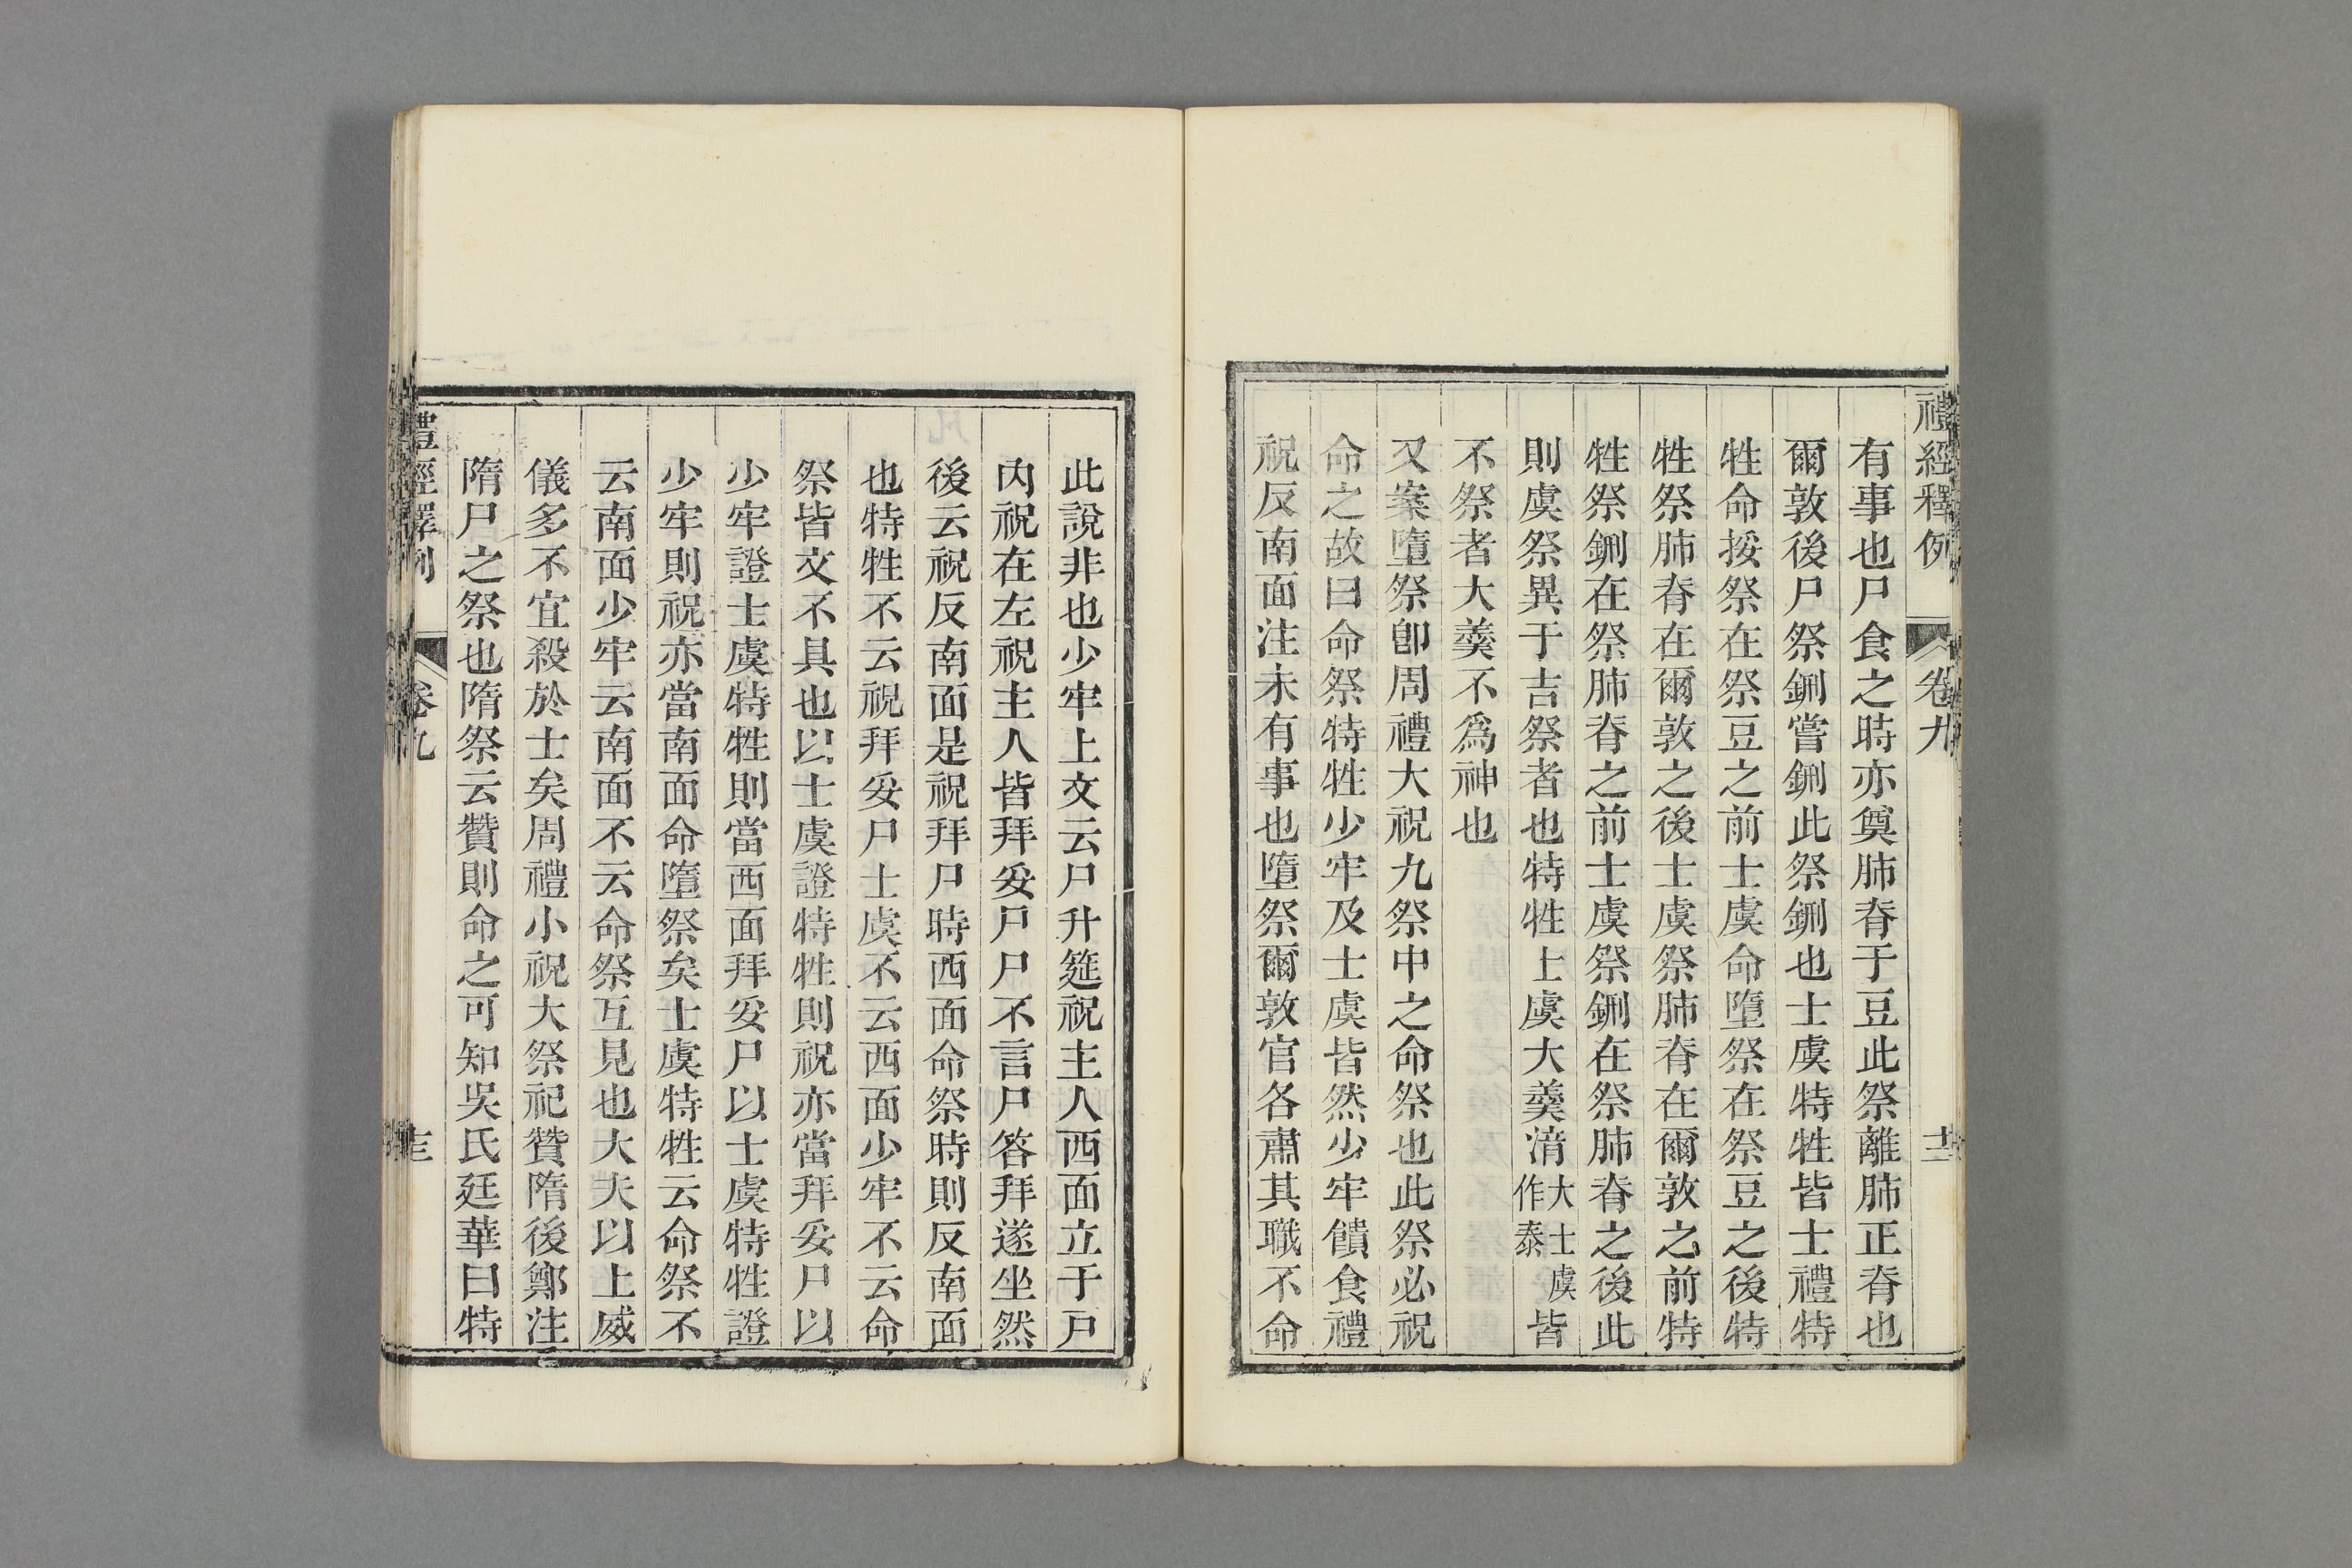 禮經釋例 卷九 十二
有事也尸食之時亦奠肺脊于豆此祭離肺正脊也
爾敦後尸祭鉶嘗鉶此祭鉶也士虞特牲皆士禮特
牲命挼祭在祭豆之前士虞命墮祭在祭豆之後特
牲祭肺脊在爾敦之後士虞祭肺脊在爾敦之前特
牲祭鉶在祭肺脊之前士虞祭鉶在祭肺脊之後此
則虞祭異于吉祭者也特牲士虞大羹湇大士虞作泰皆
不祭者大羹不爲神也
又案墮祭卽周禮大祝九祭中之命祭也此祭必祝
命之故曰命祭特牲少牢及士虞皆然少牢饋食禮
祝反南面注未有事也墮祭爾敦官各肅其職不命
此說非也少牢上文云尸升筵祝主人西面立于戸
內祝在左祝主人皆拜妥尸尸不言尸答拜遂坐然
後云祝反南面是祝拜尸時西面命祭時則反南面
也特牲不云祝拜妥尸士虞不云西面少牢不云命
祭皆文不具也以士虞證特牲則祝亦當拜妥尸以
少牢證士虞特牲則當西面拜妥尸以士虞特牲證
少牢則祝亦當南面命墮祭矣士虞特牲云命祭不
云南面少牢云南面不云命祭互見也大夫以上威
儀多不宜殺於士矣周禮小祝大祭祀贊隋後鄭注
隋尸之祭也隋祭云贊則命之可知吳氏廷華曰特
禮經釋例 卷九